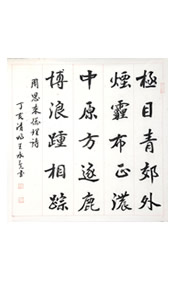 極目青郊外
煙霾布正濃
中原方逐鹿
博浪踵相踪
周恩来總理詩
丁亥清明王永亮書